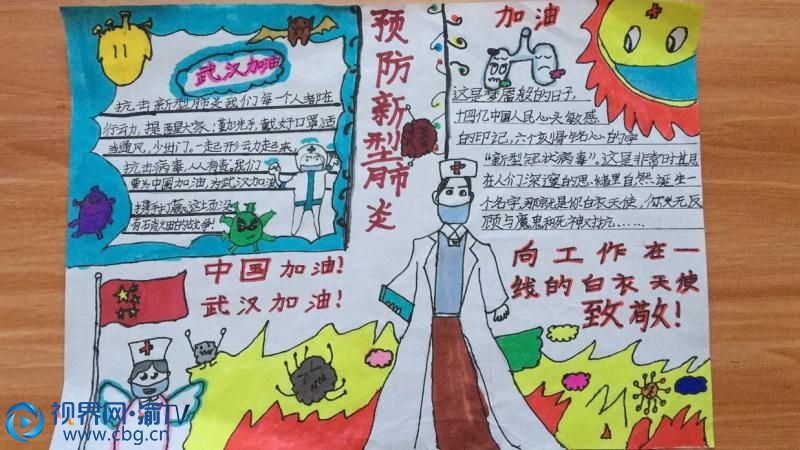 武汉加油
抗击新型肺炎我们每一个人都在
行动,提醒大家:勤洗手,戴好口罩适
当通风,少出门。一起形动起来,
抗击病毒,人人有责。我们
要为中国加油,为武汉加油
携手打赢这场没
有硝烟的战争!
预防新型肺炎
加油
这是梦魇般的日子,
十四亿中国人民心头敏感
的印记,六个刻骨铭心的字
“新型冠状病毒”。这是非常时其月
在人们深邃的思绪里自然诞生一
个名字,那就是你白衣天使,你义无反
顾与魔鬼和死神对抗……
中国加油!
武汉加油!
向工作在一
线的白衣天使
致敬!
视界网·渝TV
www.cbg.cn